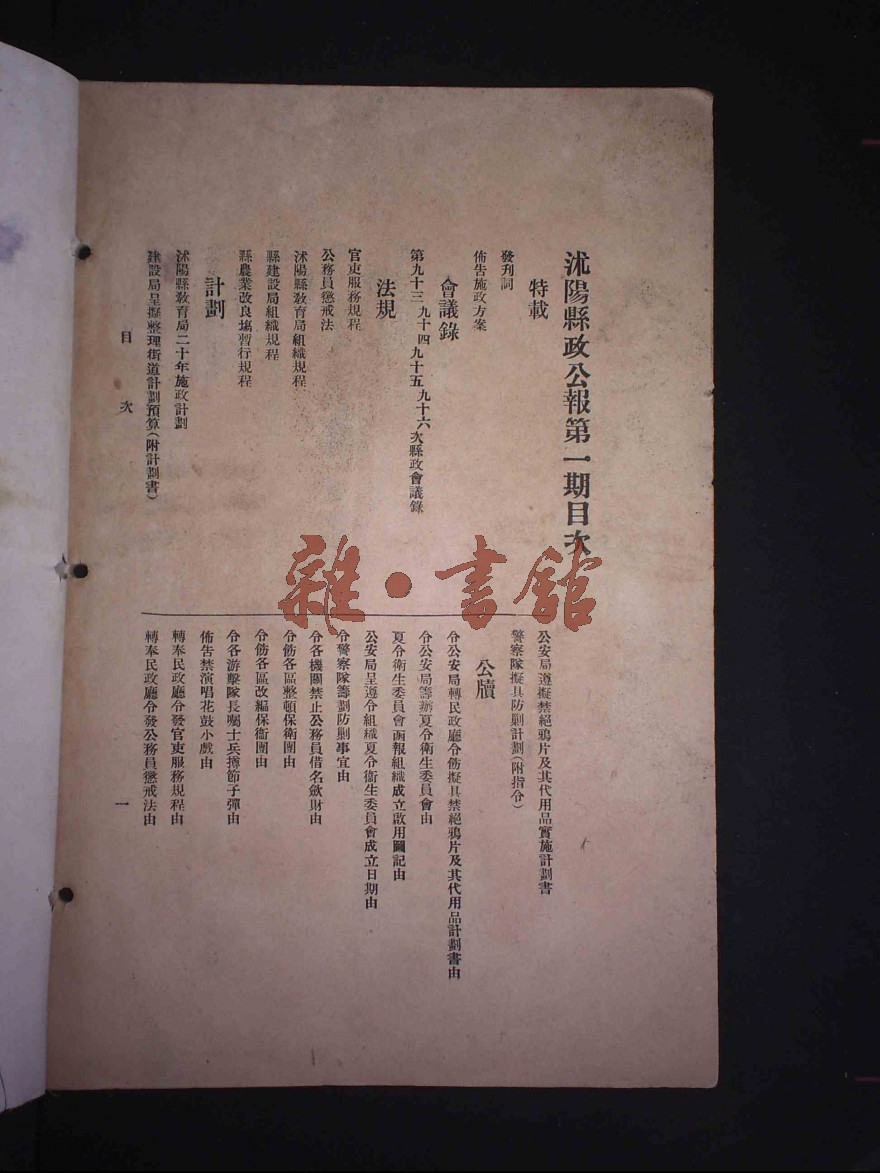 沭陽縣政公報第一期目次
特載
發刊詞
佈告施政方案
會議錄
第九十三 九十四 九十五 九十六次縣政會議錄
法規
官吏服務規程
公務員懲戒法
沭陽縣敎育局組織規程
縣建設局組織規程
縣農業改良塲暫行規程
計劃
沭陽縣敎育局二十年施政計劃
建設局呈擬整理街道計劃預算(附計劃書)
公安局遵擬禁絕鴉片及其代用品實施計劃書
警察隊擬具防剿計劃(附指令)
公牘
令公安局轉民政廳令飭擬具禁絕鴉片及其代用品計劃書由
令公安局籌辦夏令衛生委員會由
夏令衛生委員會函報組織成立啟用圖記由
公安局呈遵令組織夏令衛生委員會成立日期由
令警察隊籌劃防剿事宜由
令各機關禁止公務員借名斂財由
令飭各區整頓保衛團由
令飭各區改編保衛團由
令各游擊隊長囑士兵撙節子彈由
佈告禁演唱花鼓小戲由
轉奉民政廳令發官吏服務規程由
轉奉民政廳令發公務員懲戒法由
目次
一
雜·書館